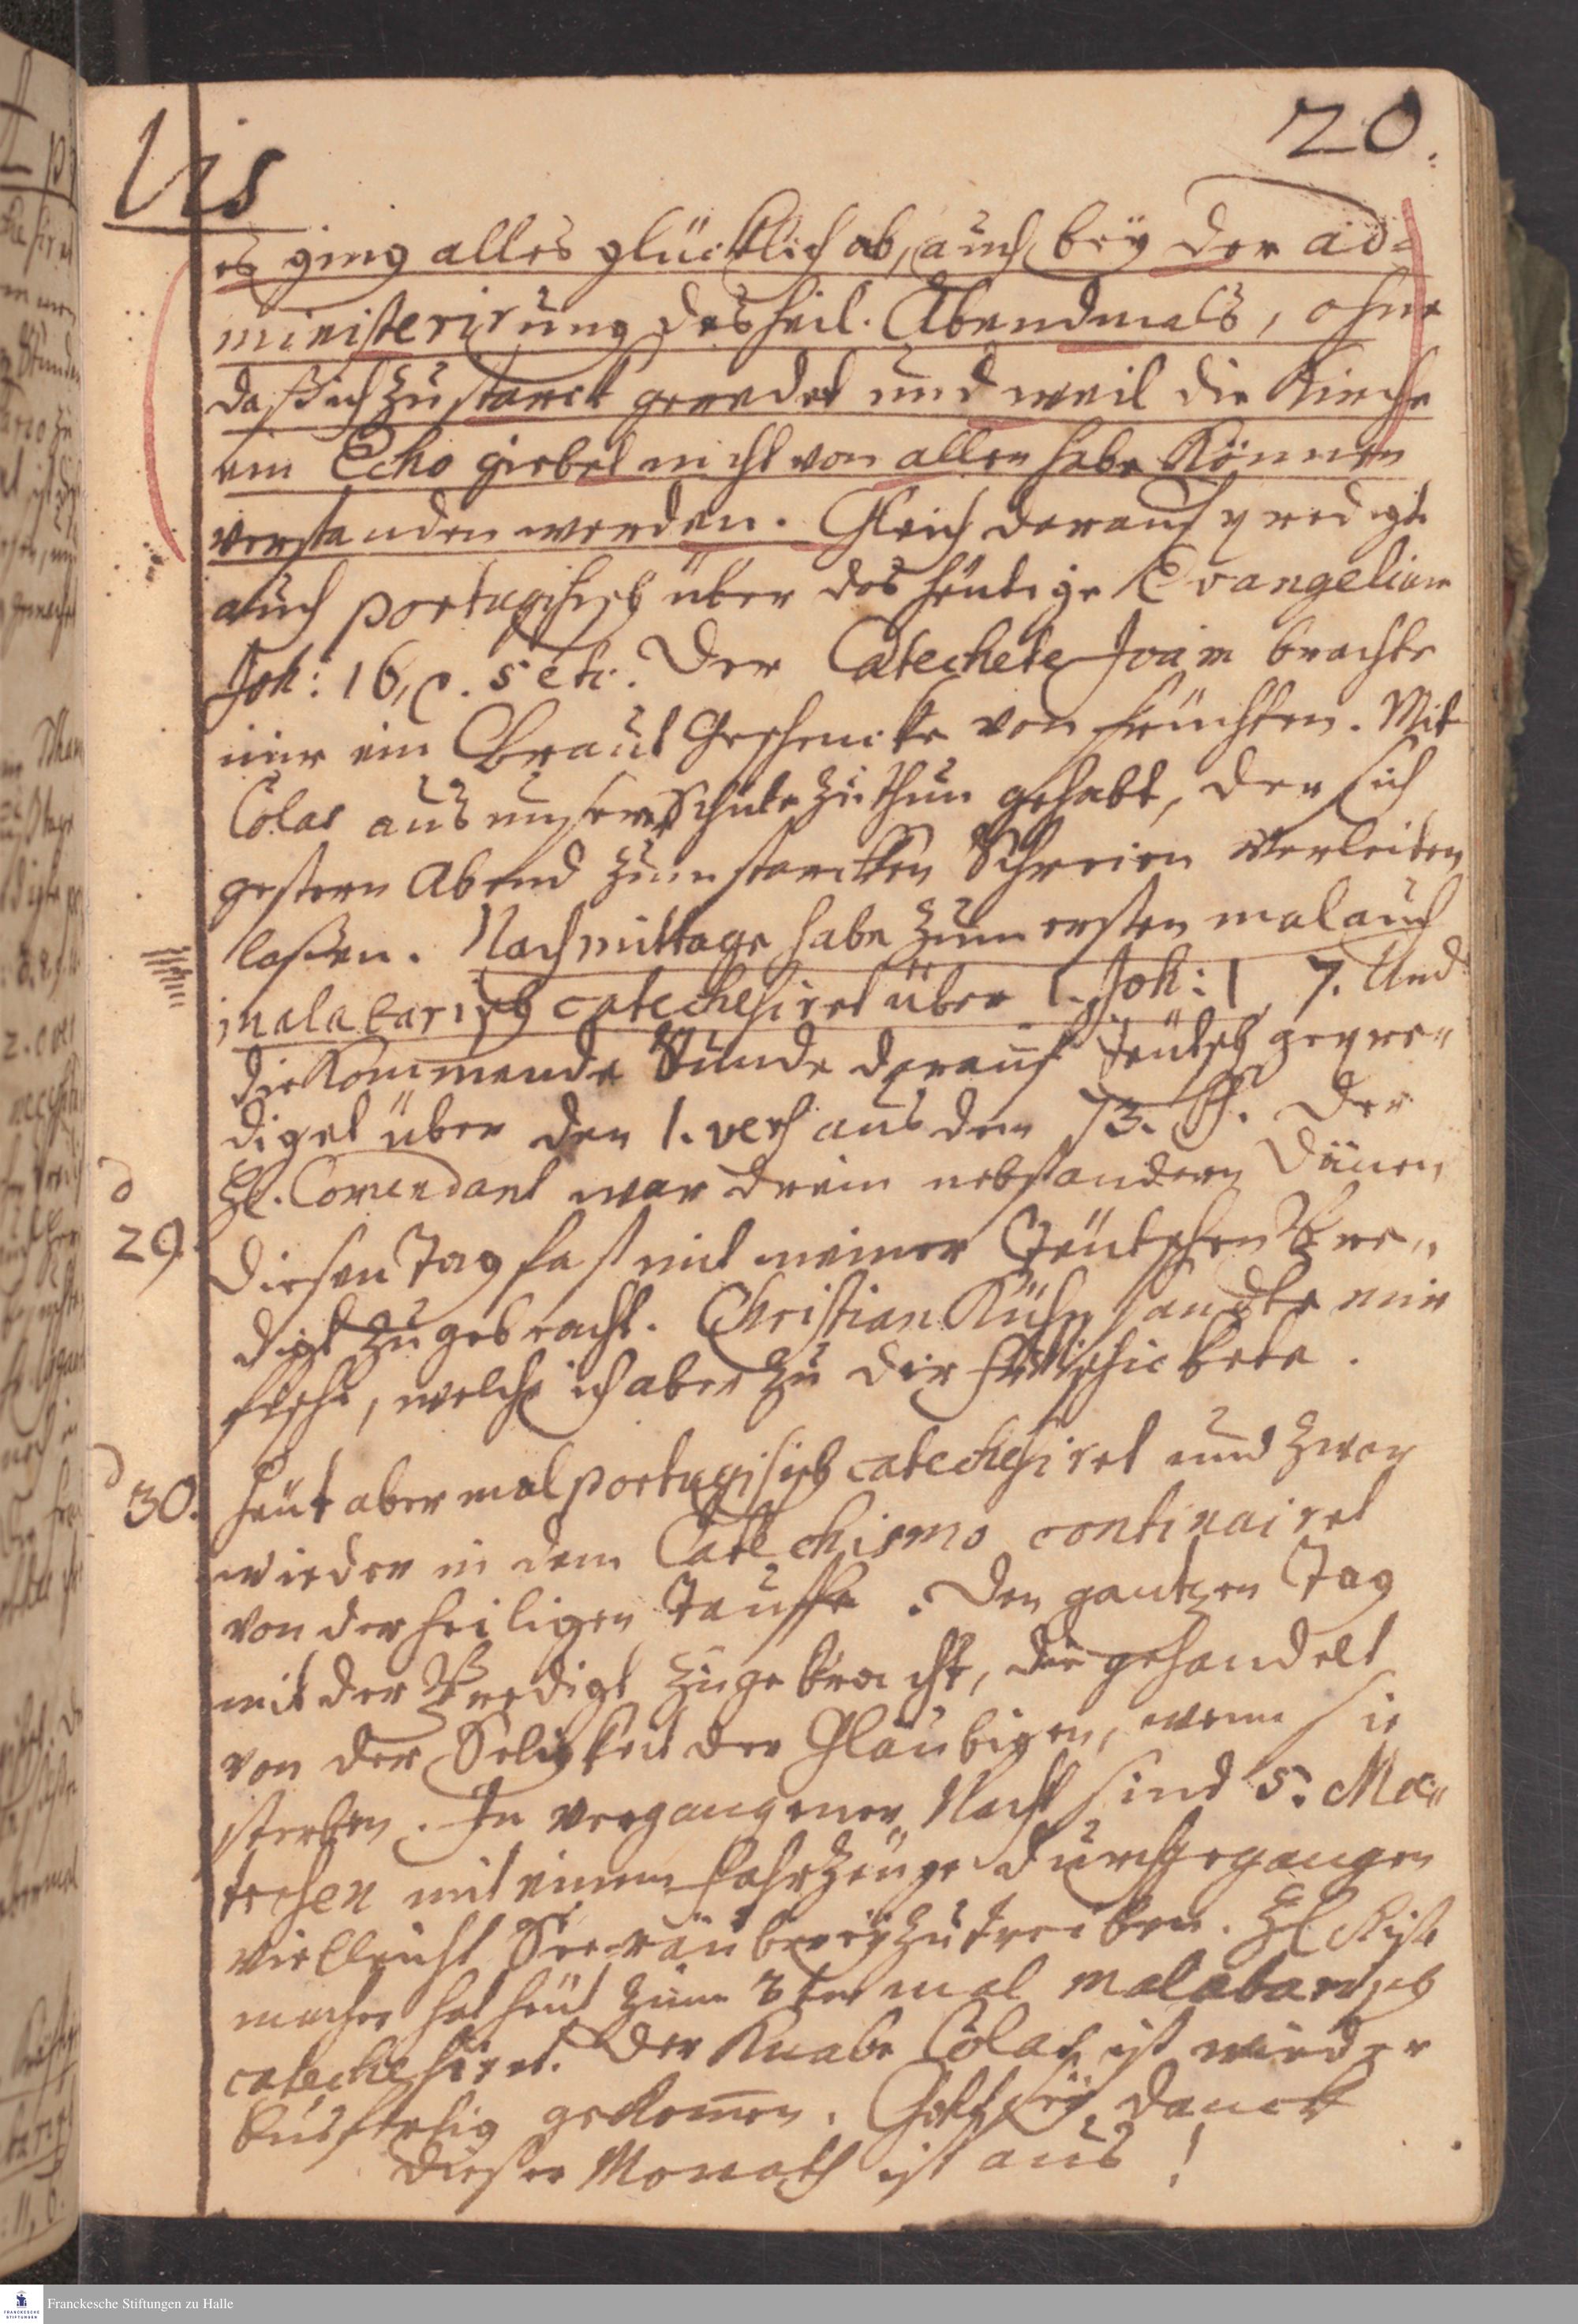 20.
lis
es ging alles glücklich ab, auch bey der ad=
ministerirung des heil. Abendmals, ohne
daß ich zu starck geredet und weil die Kirche
ein Echo giebet nicht von allen habe können
verstanden werden. Gleich darauf predigte
auch portugisisch über das heutige Evangelium
Joh: 16, v. 5 etc. Der Catechete Joam brachte
mir ein Braut Geschencke von Früchten. Mit
Colas aus unserer Schule zu thun gehabt, der sich
gestern Abend zum starcken Schreien verleiten
laßen. Nachmittage habe zum ersten mal auch
malabarisch catechesiret über 1. Joh: 1, 7. Und
die kommende Stunde darauf teutsch gepre=
diget über den 1. vers aus dem 73. Ps. Der
H. Comendant war drein nebst andern Dänen
29. Diesen Tag fast mit meiner Teutschen Pre=
digt zugebracht. Christian Kühn sandte mir
Fische, welche ich aber zu dir schickete.
30. Heut abermal portugisisch catechesiret und zwar
wieder in dem Catechismo continuiret
von der heiligen Tauffe. Den gantzen Tag
mit der Predigt zugebracht, die gehandelt
von der Seligkeit der Gläubigen, wenn sie
sterben. In vergangener Nacht sind 5. Ma=
trosen mit einem Fahrzeuge durchgegangen
vielleicht Seeräuberey zu treiben. H. Kiste
macher hat heut zum 3ten mal malabarisch
catechesiret. Der Knabe Colas ist wieder
bußfertig gekommen. Gott sey Danck
dieser Monath ist aus!
Franckesche Stiftungen zu Halle